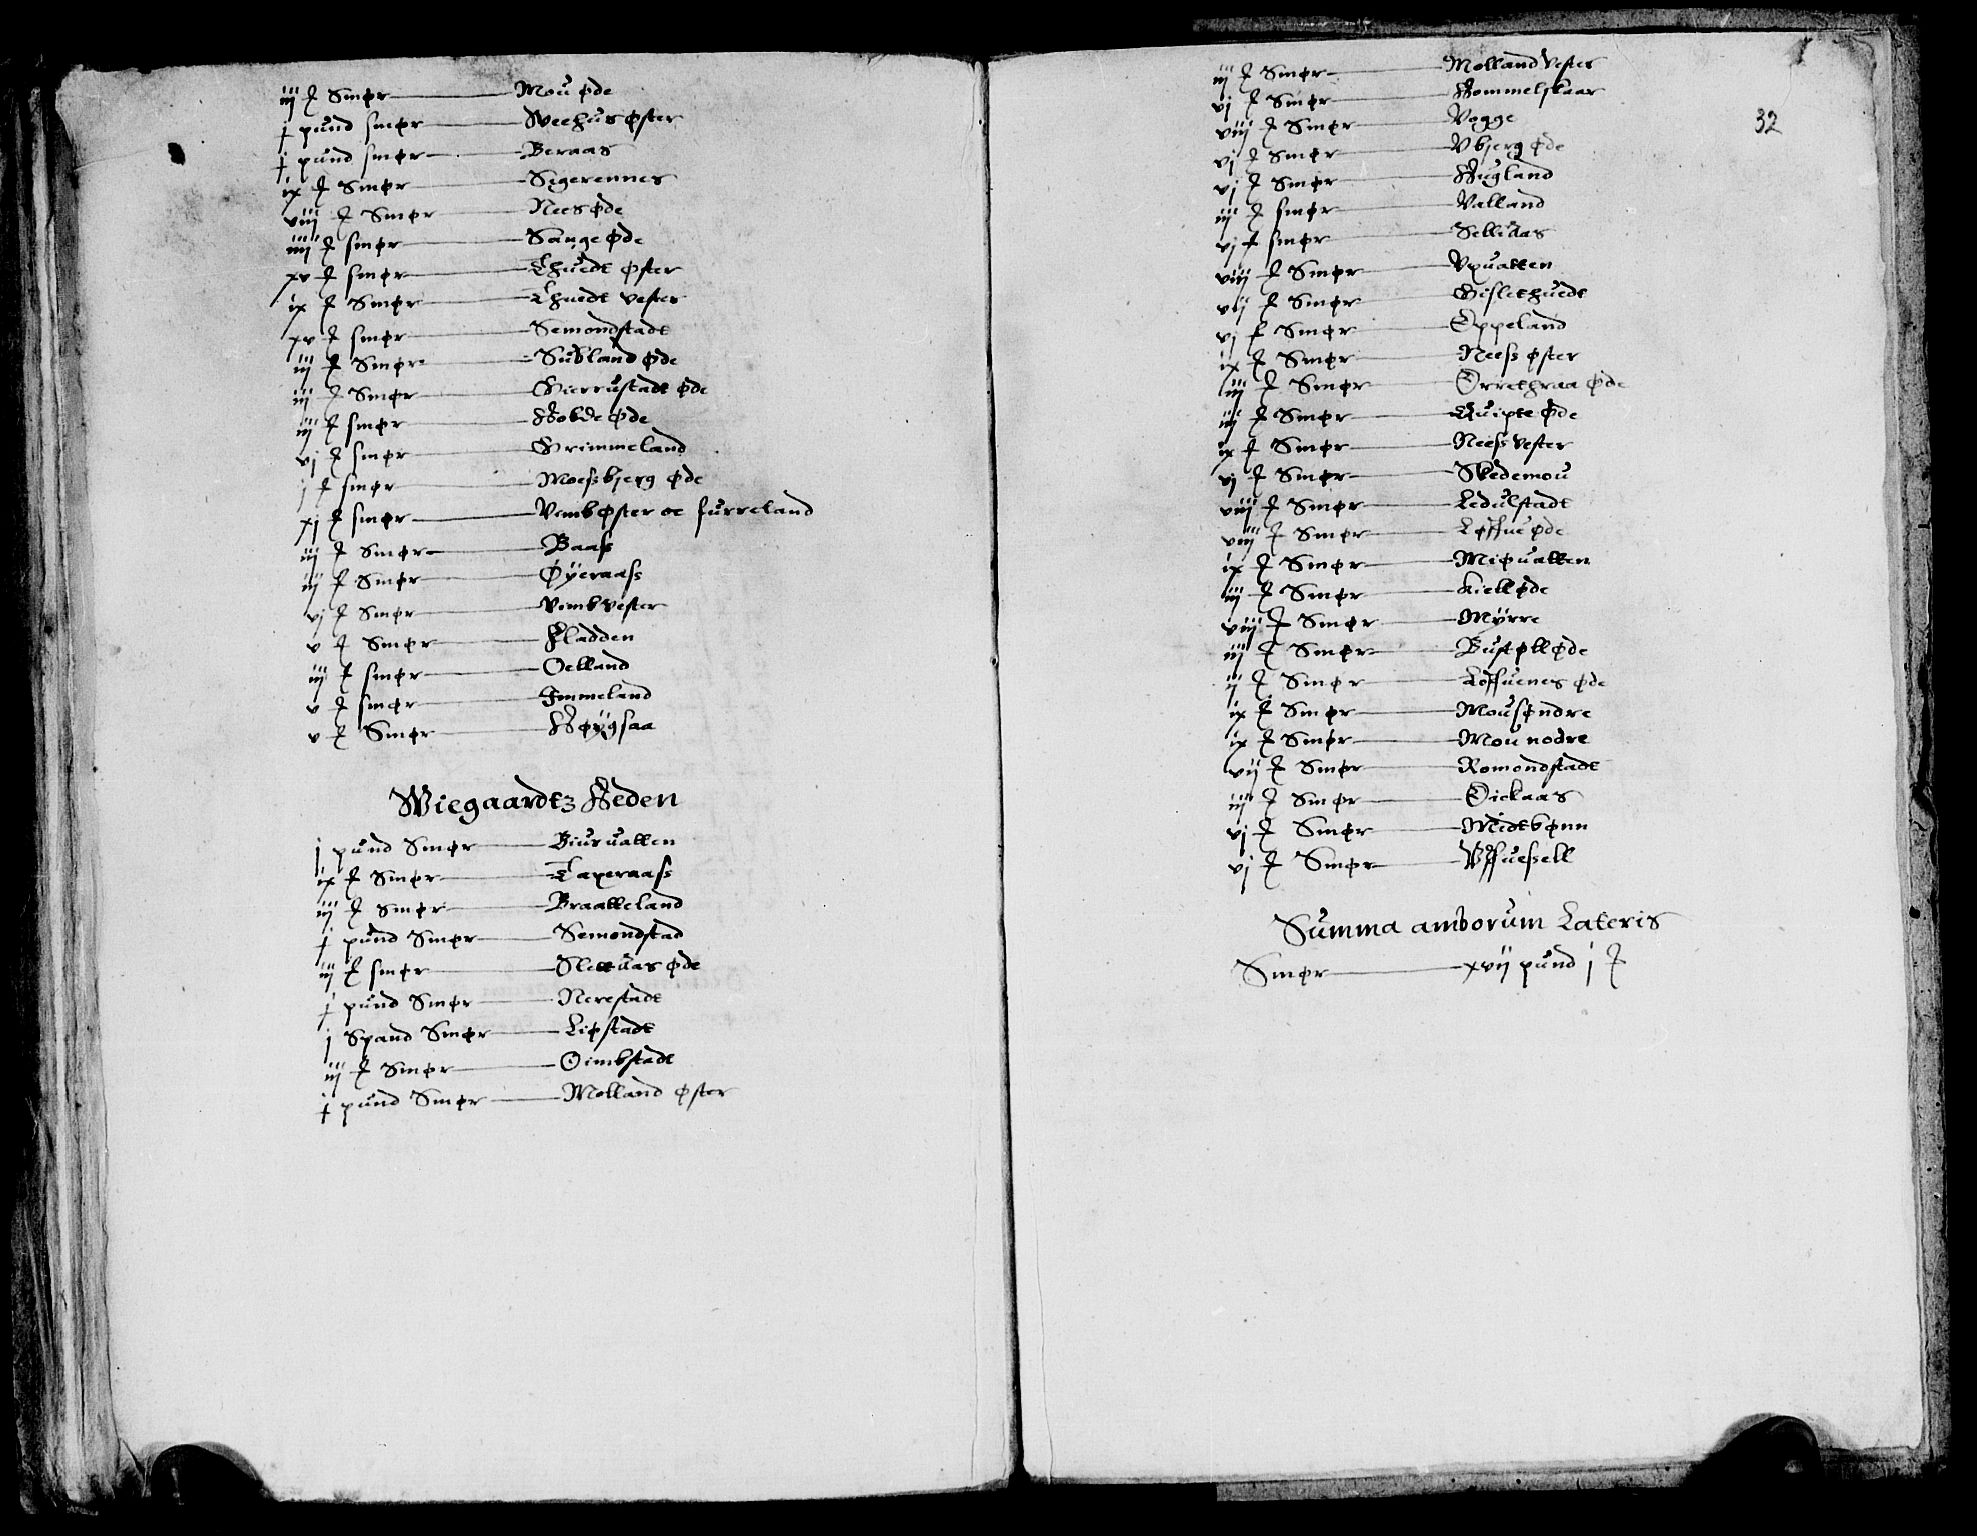 iij ℔ Smør — Mou øde
j pund smør — Veehus øster
j pund smør — Beraas
ix ℔ Smør — Sigerennes
viij ℔ Smør — Nees øde
iiij ℔ smør — Sange øde
xv ℔ smør — Thuedt øster
ix ℔ Smør — Thuedt vester
xv ℔ smør — Semondstadt
iij ℔ Smør — Subland øde
iij ℔ Smør — Gierrustadt øde
iij ℔ smør — Hobde øde
vj ℔ smør — Grimmeland
j ℔ smør — Moessbjerg øde
xj ℔ smør — Vemb øster oc furreland
iij ℔ Smør — Baass
iij ℔ Smør — Øyeraass
vj ℔ Smør — Vemb vester
v ℔ Smør — Fladden
iij ℔ smør — Oelland
v ℔ smør — Immeland
v ℔ Smør — Høygsaa
Wiegaardtz Heden
j pund Smør — Biuruatten
ix ℔ Smør — Taxeraass
iij ℔ Smør — Braatteland
j pund Smør — Semondstad
iij ℔ smør — Slettuas øde
j pund Smør — Nerestadt
j Spand Smør — Lipstadt
iij ℔ Smør — Oimbstadt
j pund Smør — Molland øster
32
iij ℔ Smør — Molland Vester
vj ℔ Smør — Hommelskaar
viij ℔ Smør — Vogge
vj ℔ Smør — Vbjerg øde
vj ℔ Smør — Hugland
iij ℔ smør — Valland
vj ℔ smør — Selleuas
viij ℔ Smør — Vpuatten
vij ℔ Smør — Gislethuedt
vj ℔ Smør — Oppeland
ix ℔ Smør — Neess øster
iiij ℔ Smør — Orrethraa øde
iij ℔ Smør — Quipte øde
ix ℔ Smør — Neess Vester
vj ℔ Smør — Skedemou
viij ℔ Smør — Ledulstadt
viij ℔ Smør — Løffue øde
ix ℔ Smør — Miøuatten
iij ℔ Smør — Kiell øde
viij ℔ Smør — Myrre
iij ℔ Smør — Bustøll øde
ij ℔ Smør — Loffuenes øde
ix ℔ Smør — Mou søndre
ix ℔ Smør — Mou nodre
vij ℔ Smør — Romondstadt
iij ℔ Smør — Oiekaas
vj ℔ Smør — Midtbønn
vj ℔ Smør — Vffuesell
Summa amborum Lateris
Smør — xvij pund j ℔